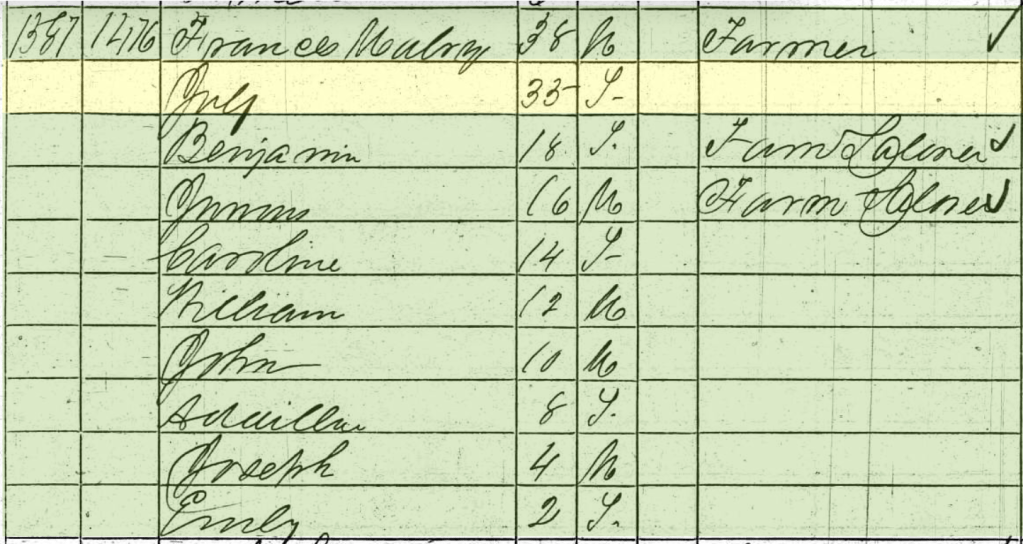 1387 1476 Frances Mabry 38 M Farmer ✓
July 33 F
Benjamin 18 F. Farm Laborer ✓
16 M Farm Laborer ✓
Caroline 14 F
William 12 M
John 10 M
8 F.
Joseph 4 M
Emily 2 F.